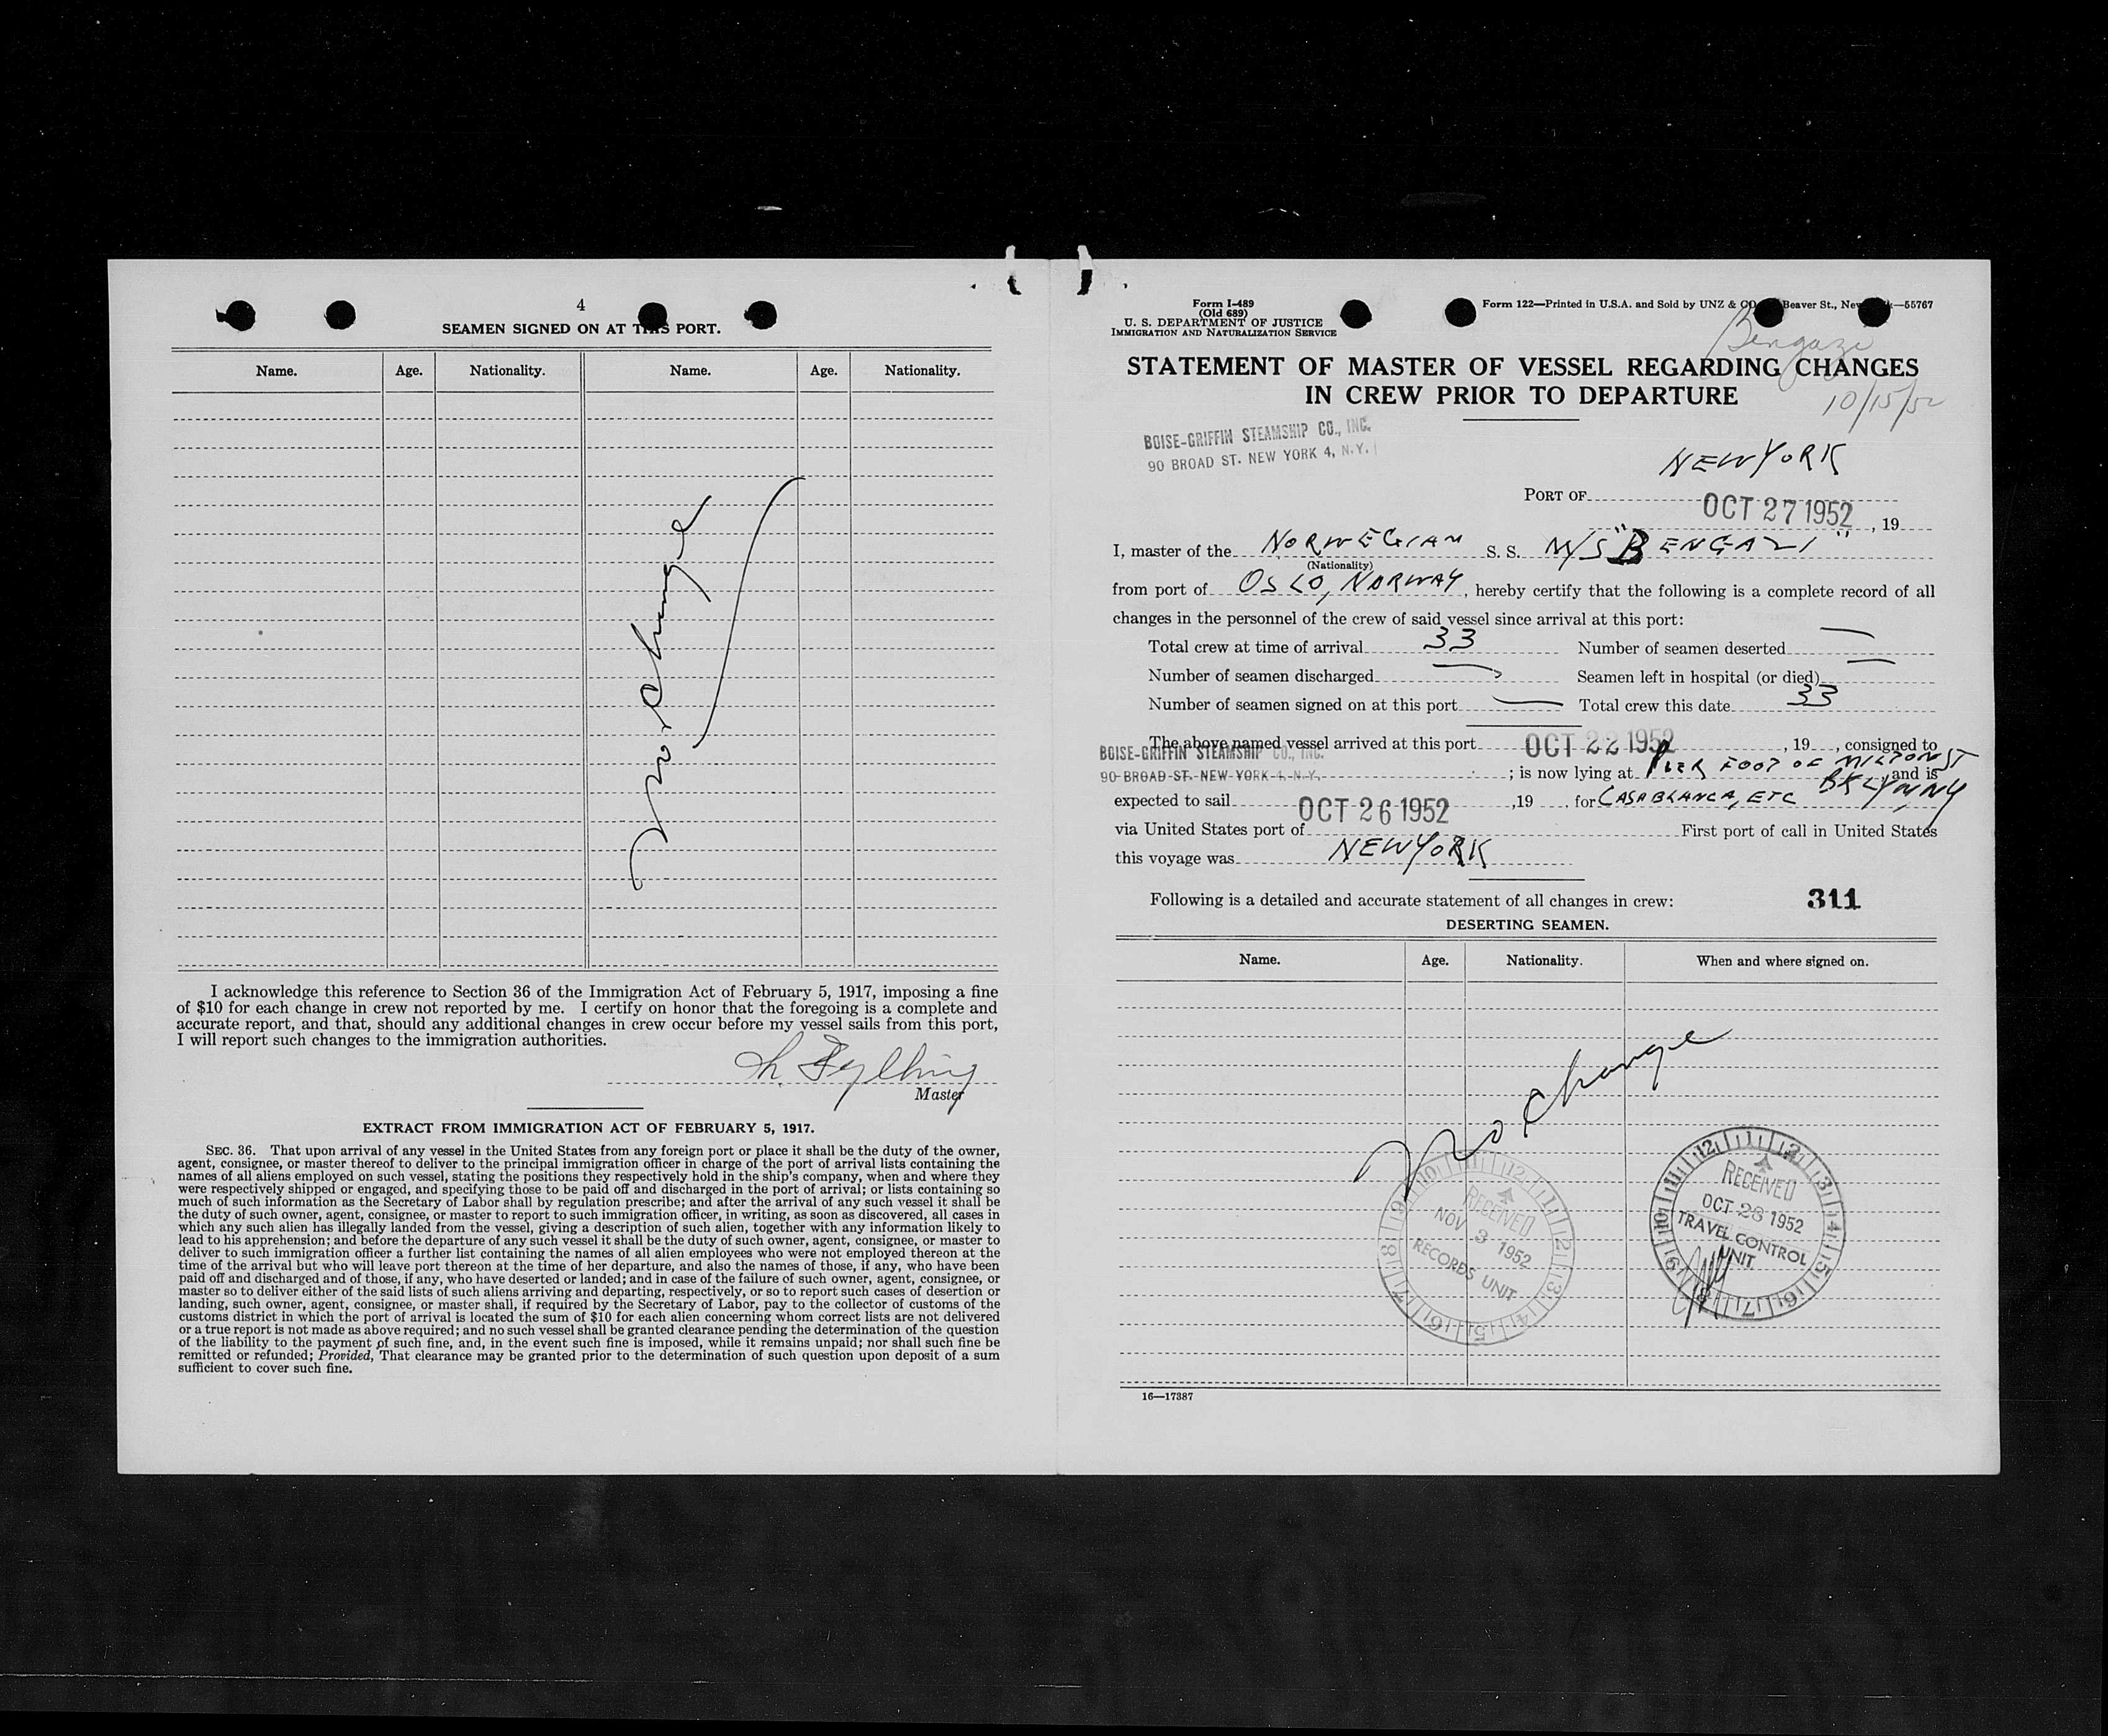 4
SEAMEN SIGNED ON AT THIS PORT.
Name. Age. Nationality. Name. Age. Nationality.
no change
I acknowledge this reference to Section 36 of the Immigration Act of February 5, 1917, imposing a fine
of $10 for each change in crew not reported by me. I certify on honor that the foregoing is a complete and
accurate report, and that, should any additional changes in crew occur before my vessel sails from this port,
I will report such changes to the immigration authorities.
Fylling
Master
EXTRACT FROM IMMIGRATION ACT OF FEBRUARY 5, 1917.
SEC. 36. That upon arrival of any vessel in the United States from any foreign port or place it shall be the duty of the owner,
agent, consignee, or master thereof to deliver to the principal immigration officer in charge of the port of arrival lists containing the
names of all aliens employed on such vessel, stating the positions they respectively hold in the ship's company, when and where they
were respectively shipped or engaged, and specifying those to be paid off and discharged in the port of arrival; or lists containing so
much of such information as the Secretary of Labor shall by regulation prescribe; and after the arrival of any such vessel it shall be
the duty of such owner, agent, consignee, or master to report to such immigration officer, in writing, as soon as discovered, all cases in
which any such alien has illegally landed from the vessel, giving a description of such alien, together with any information likely to
lead to his apprehension; and before the departure of any such vessel it shall be the duty of such owner, agent, consignee, or master to
deliver to such immigration officer a further list containing the names of all alien employees who were not employed thereon at the
time of the arrival but who will leave port thereon at the time of her departure, and also the names of those, if any, who have been
paid off and discharged and of those, if any, who have deserted or landed; and in case of the failure of such owner, agent, consignee, or
master so to deliver either of the said lists of such aliens arriving and departing, respectively, or so to report such cases of desertion or
landing, such owner, agent, consignee, or master shall, if required by the Secretary of Labor, pay to the collector of customs of the
customs district in which the port of arrival is located the sum of $10 for each alien concerning whom correct lists are not delivered
or a true report is not made as above required; and no such vessel shall be granted clearance pending the determination of the question
of the liability to the payment of such fine, and, in the event such fine is imposed, while it remains unpaid; nor shall such fine be
remitted or refunded; Provided, That clearance may be granted prior to the determination of such question upon deposit of a sum
sufficient to cover such fine.
Form I-489
(Old 689)
U. S. DEPARTMENT OF JUSTICE
IMMIGRATION AND NATURALIZATION SERVICE
Form 122—Printed in U.S.A. and Sold by UNZ & CO Beaver St., New —55767
Bengazi
STATEMENT OF MASTER OF VESSEL REGARDING CHANGES
IN CREW PRIOR TO DEPARTURE
10/15/52
BOISE-GRIFFIN STEAMSHIP CO., INC.
90 BROAD ST. NEW YORK 4, N.Y.
NEW YORK
PORT OF
OCT 27 1952, 19
I, master of the NORWEGIAN S. S. M/S "BENGAZI"
(Nationality)
from port of OSLO, NORWAY, hereby certify that the following is a complete record of all
changes in the personnel of the crew of said vessel since arrival at this port:
Total crew at time of arrival 33 Number of seamen deserted —
Number of seamen discharged — Seamen left in hospital (or died) —
Number of seamen signed on at this port — Total crew this date 33
The above named vessel arrived at this port OCT 22 1952, 19, consigned to
BOISE-GRIFFIN STEAMSHIP CO., INC.
90 BROAD ST. NEW YORK 4, N.Y. ; is now lying at PIER FOOT OF MILTON ST BKLYN, NY and is
expected to sail OCT 26 1952, 19 for CASABLANCA, ETC
via United States port of First port of call in United States
this voyage was NEW YORK
Following is a detailed and accurate statement of all changes in crew: 311
DESERTING SEAMEN.
Name. Age. Nationality. When and where signed on.
No change
RECEIVED
NOV 3 1952
RECORDS UNIT
RECEIVED
OCT 28 1952
TRAVEL CONTROL
UNIT
16—17387